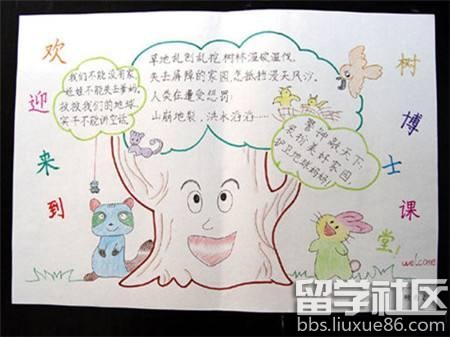 欢迎来到
我们不能没有家,
娃娃不能失去爹妈,
救救我们的地球,
实干不能讲空话
草地乱刨乱挖,树林滥砍滥伐,
失去屏障的家园,怎抵挡漫天风沙,
人类在遭受惩罚:
山崩地裂,洪水滔滔……
警钟敲天下:
美好家园,
护卫地球妈妈!
树博士课堂!
welcome
留学社区
bbs.liuxue86.com